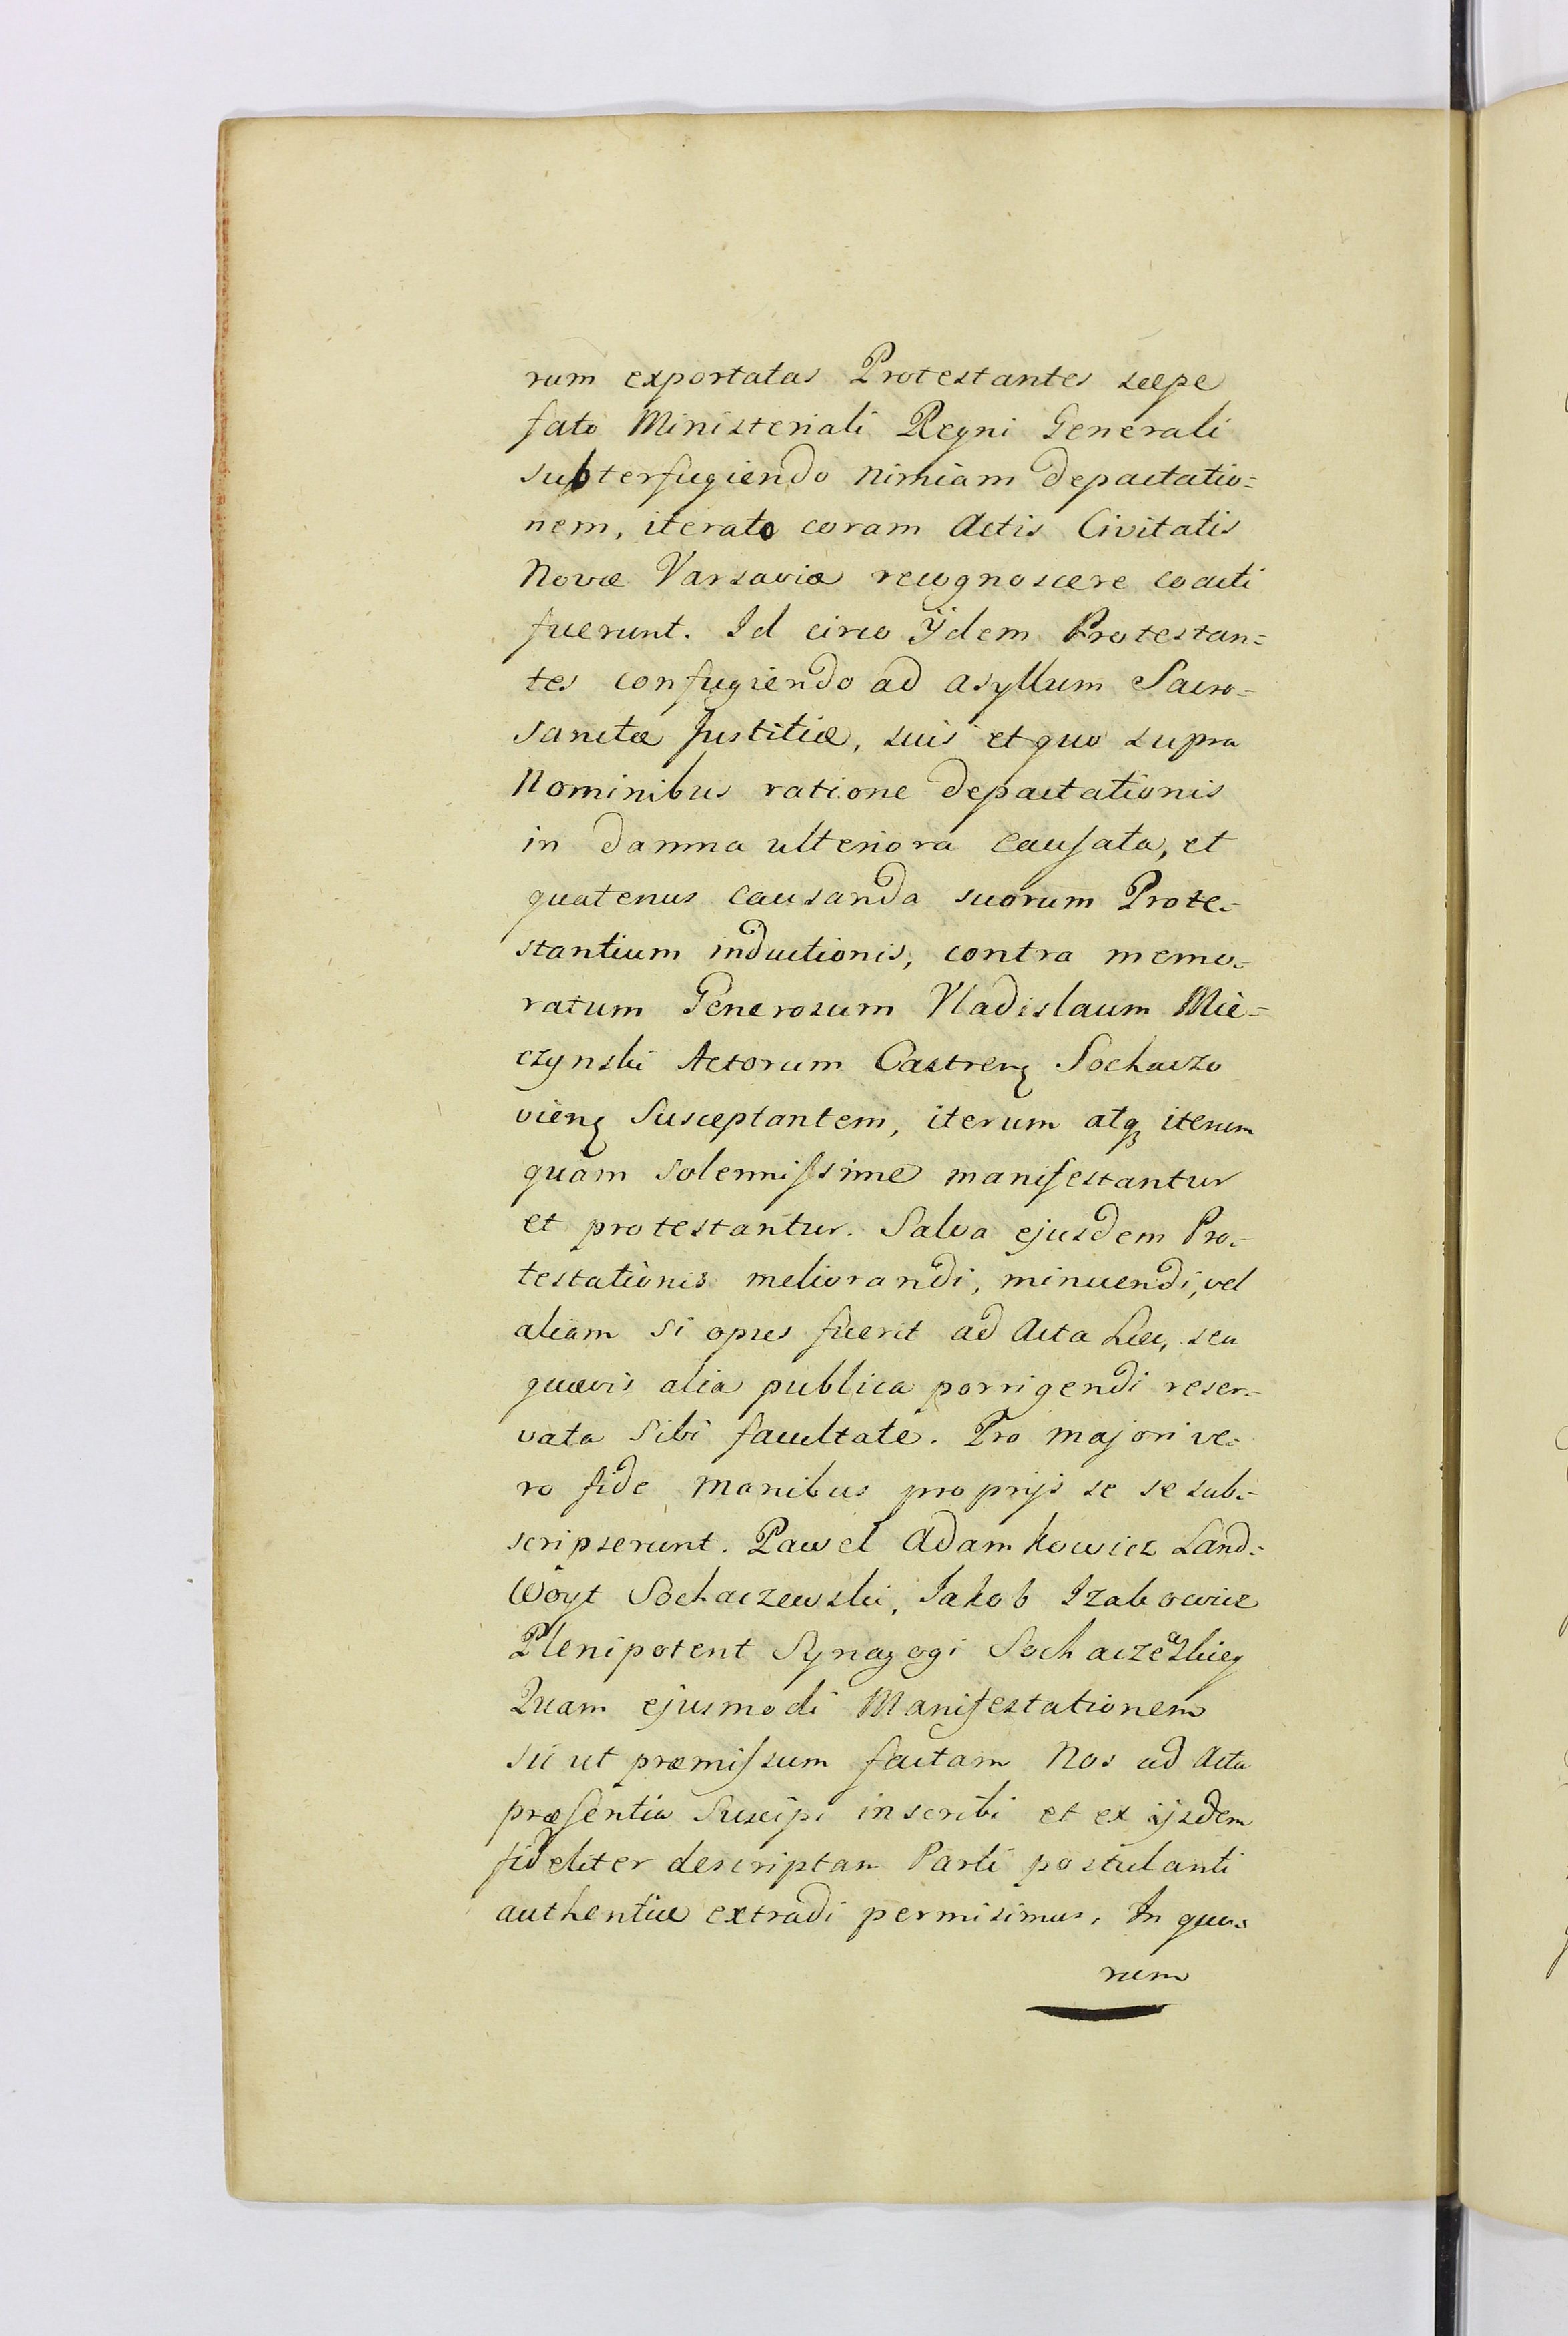 rum exportatas Protestantes sæpe
fato Ministeriali Regni Generali
subterfugiendo nimiam depactatio=
nem, iterato coram Actis Civitatis
Novæ Varsaviæ recognoscere coacti
fuerunt. Id circo ÿdem Protestan=
tes confugiendo ad asyllum Sacro=
sanctæ Justitiæ, suis et quo supra
Nominibus ratione depactationis
in damna ulteriora causata, et
quatenus causanda suorum Prote=
stantium inductionis, contra memo=
ratum Generosum Vladislaum Mie=
czynski Actorum Castrenȩ Sochaczo
vienȩ Susceptantem, iterum atqȝ iterum
quam solennissime manifestantur
et protestantur. Salva ejusdem Pro=
testationis meliorandi, minuendi, vel
aliam si opus fuerit ad Acta hæc, seu
quævis alia publica porrigendi reser=
vata sibi facultate. Pro majori ve=
ro fide manibus proprijs se se sub=
scripserunt. Pawel Adamkowicz Land=
Woyt Sochaczewski, Jakob Izakowicz
Plenipotent Synagogi Sochaczewskiey
Quam ejusmodi Manifestationem
sic ut præmissum factam Nos ad Acta
præsentia Suscipi inscribi et ex ijsdem
fideliter descriptam Parti postulanti
authentice extradi permisimus, In quo=
rum